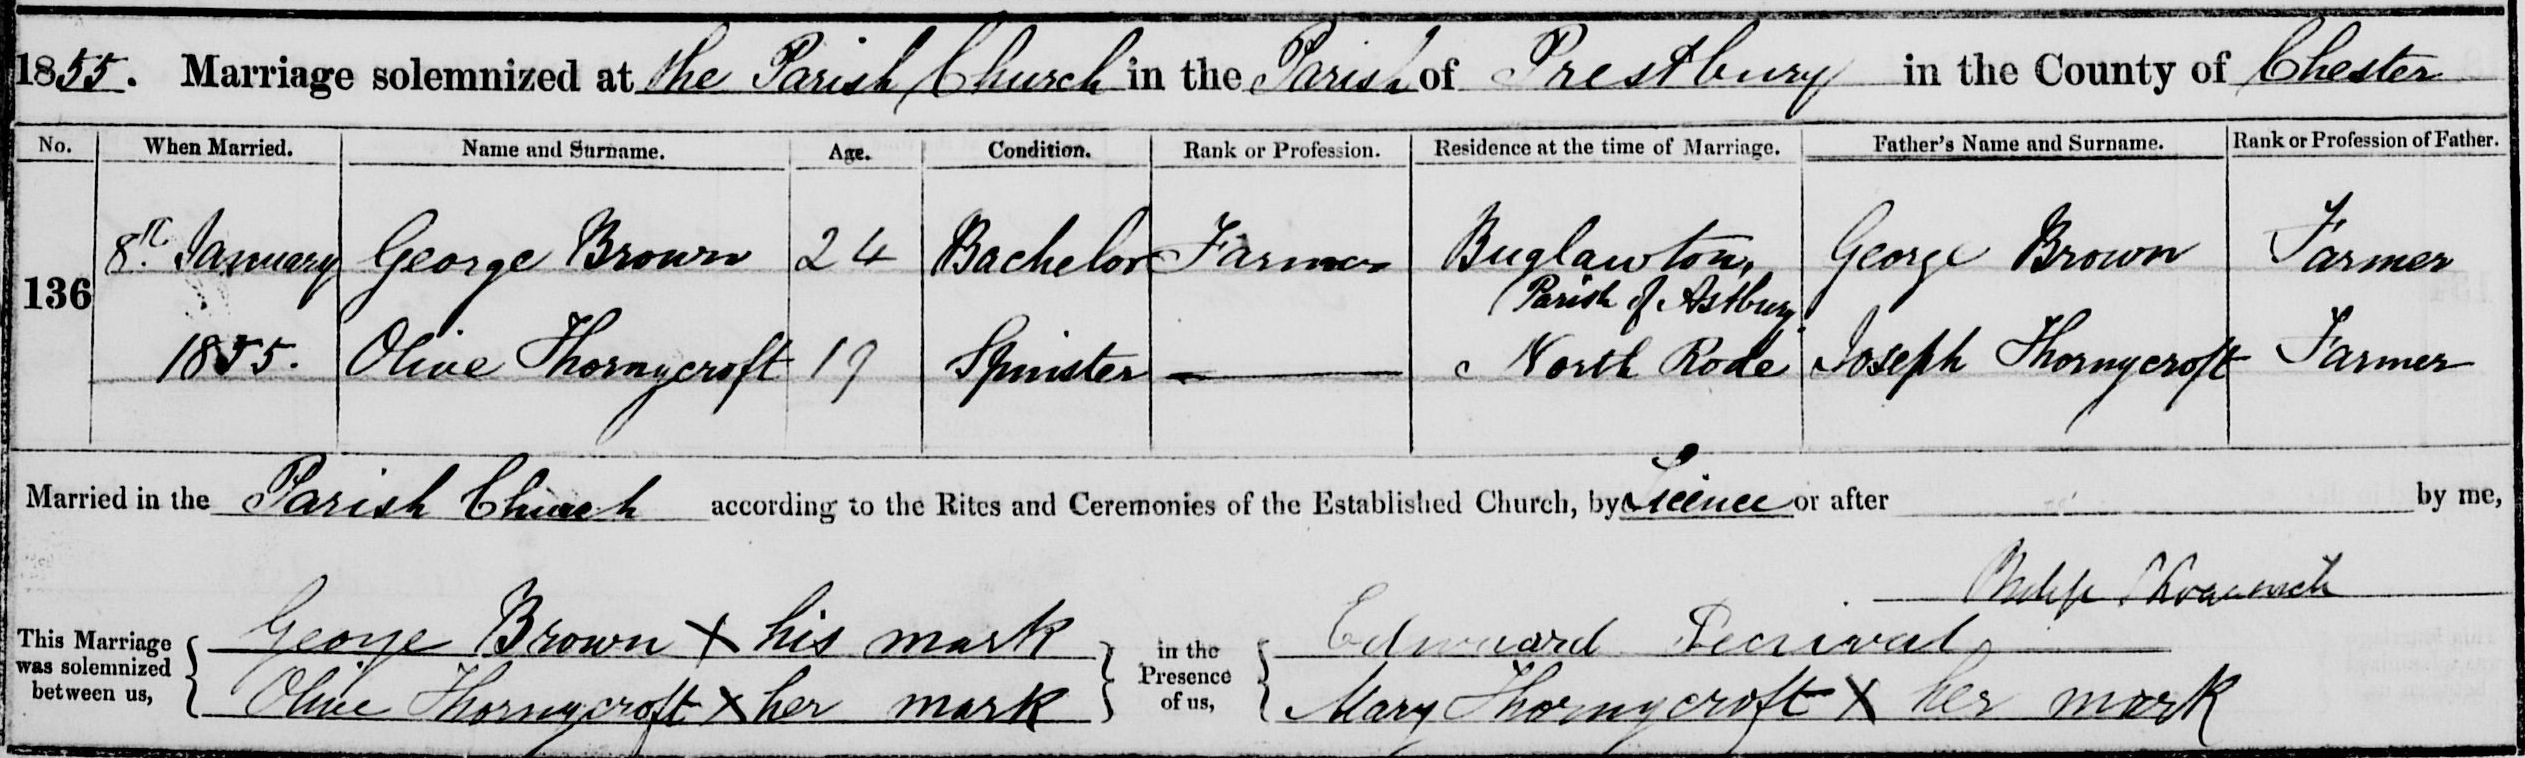 1855. Marriage solemnized at the Parish Church in the Parish of Prestbury in the County of Chester
No. When Married. Name and Surname. Age. Condition. Rank or Profession. Residence at the time of Marriage. Father's Name and Surname. Rank or Profession of Father.
8th January George Brown 24 Bachelor Farmer Buglawton, George Brown Farmer
136 Parish of Astbury
1855. Olive Thornycroft 19 Spinster North Rode Joseph Thornycroft Farmer
Married in the Parish Church according to the Rites and Ceremonies of the Established Church, by Licence or after by me,
Philip
This Marriage was solemnized between us, George Brown X his mark in the Presence of us, Edward Percival
Olive Thornycroft X her mark Mary Thornycroft X her mark